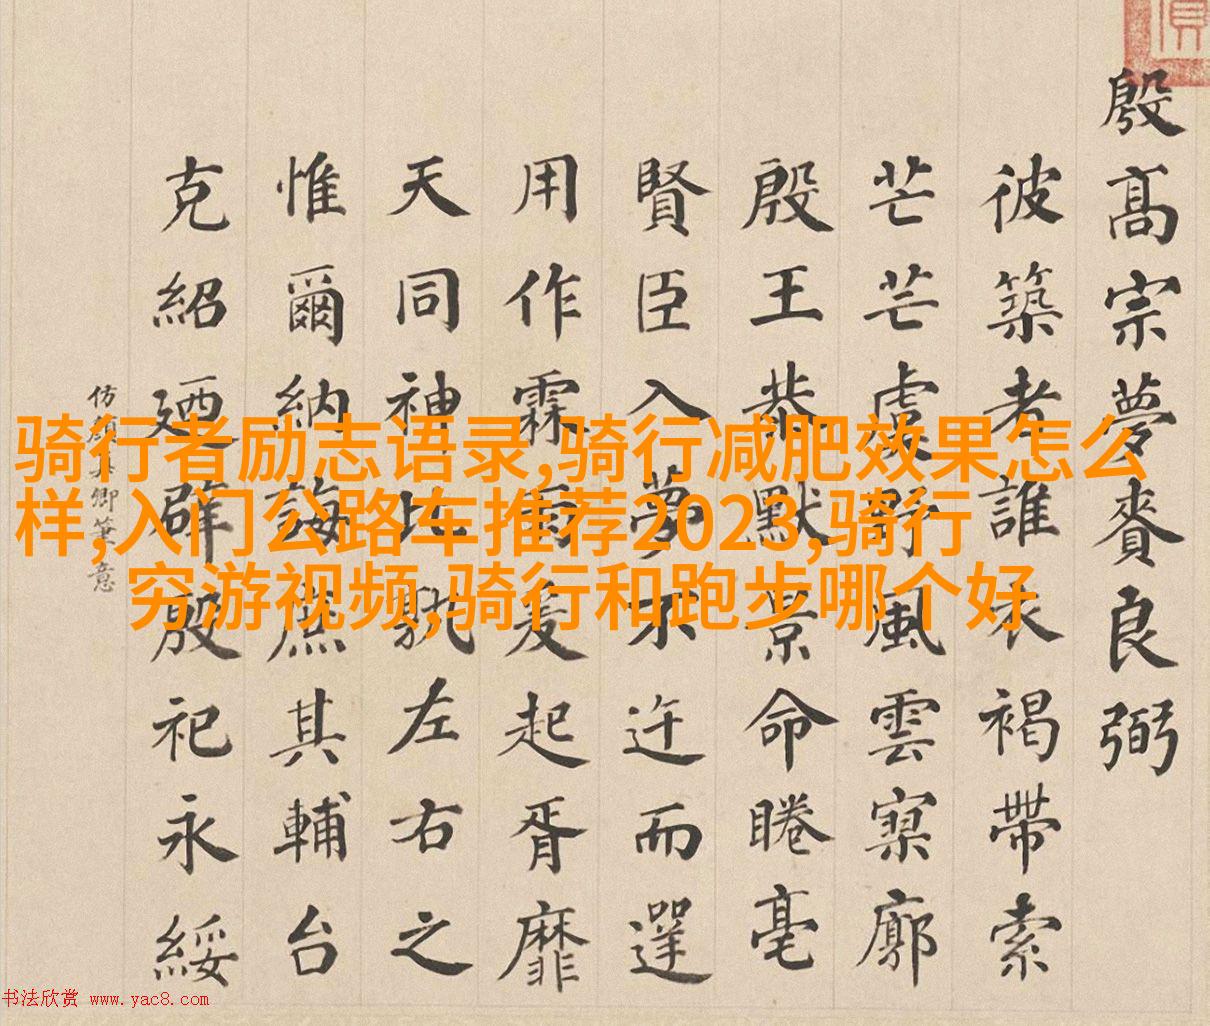 殷髙宗夢賚良弼
彼築者誰衣褐帶索
芒芒虛野風雲寥廓
殷王恭默景命睠亳
賢臣入夢不迕而
用作霖雨爰起胥靡
天同神左右之
惟爾納誨庶其輔台
克紹廼辟殷祀永綏
仿顏真卿筆意
骑行者励志语录,骑行减肥效果怎么
样,入门公路车推荐2023,骑行
穷游视频,骑行和跑步哪个好
书法欣赏 www.yac8.com